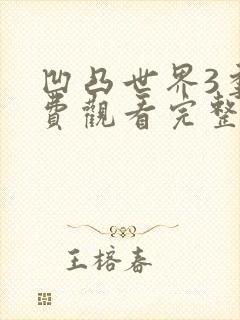 凹凸世界3
費觀看完整
王榕春